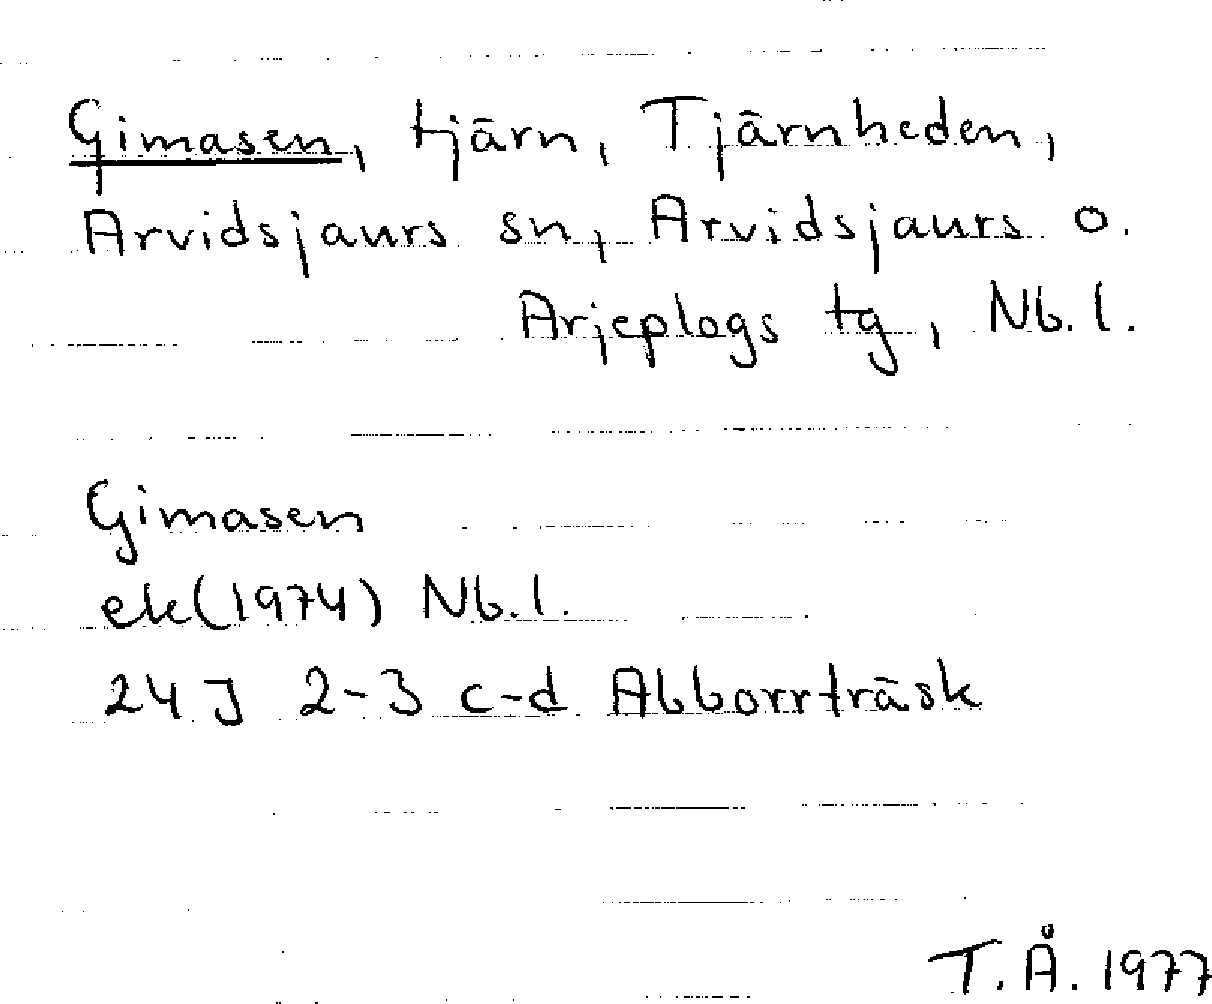 Gimasen, tjärn, Tjärnheden,
Arvidsjaurs sn, Arvidsjaurs o.
Arjeplogs tg, Nb. l.
Gimasen
ek(1974) Nb. l.
24J 2-3 c-d Abborrträsk
T. Å. 1977